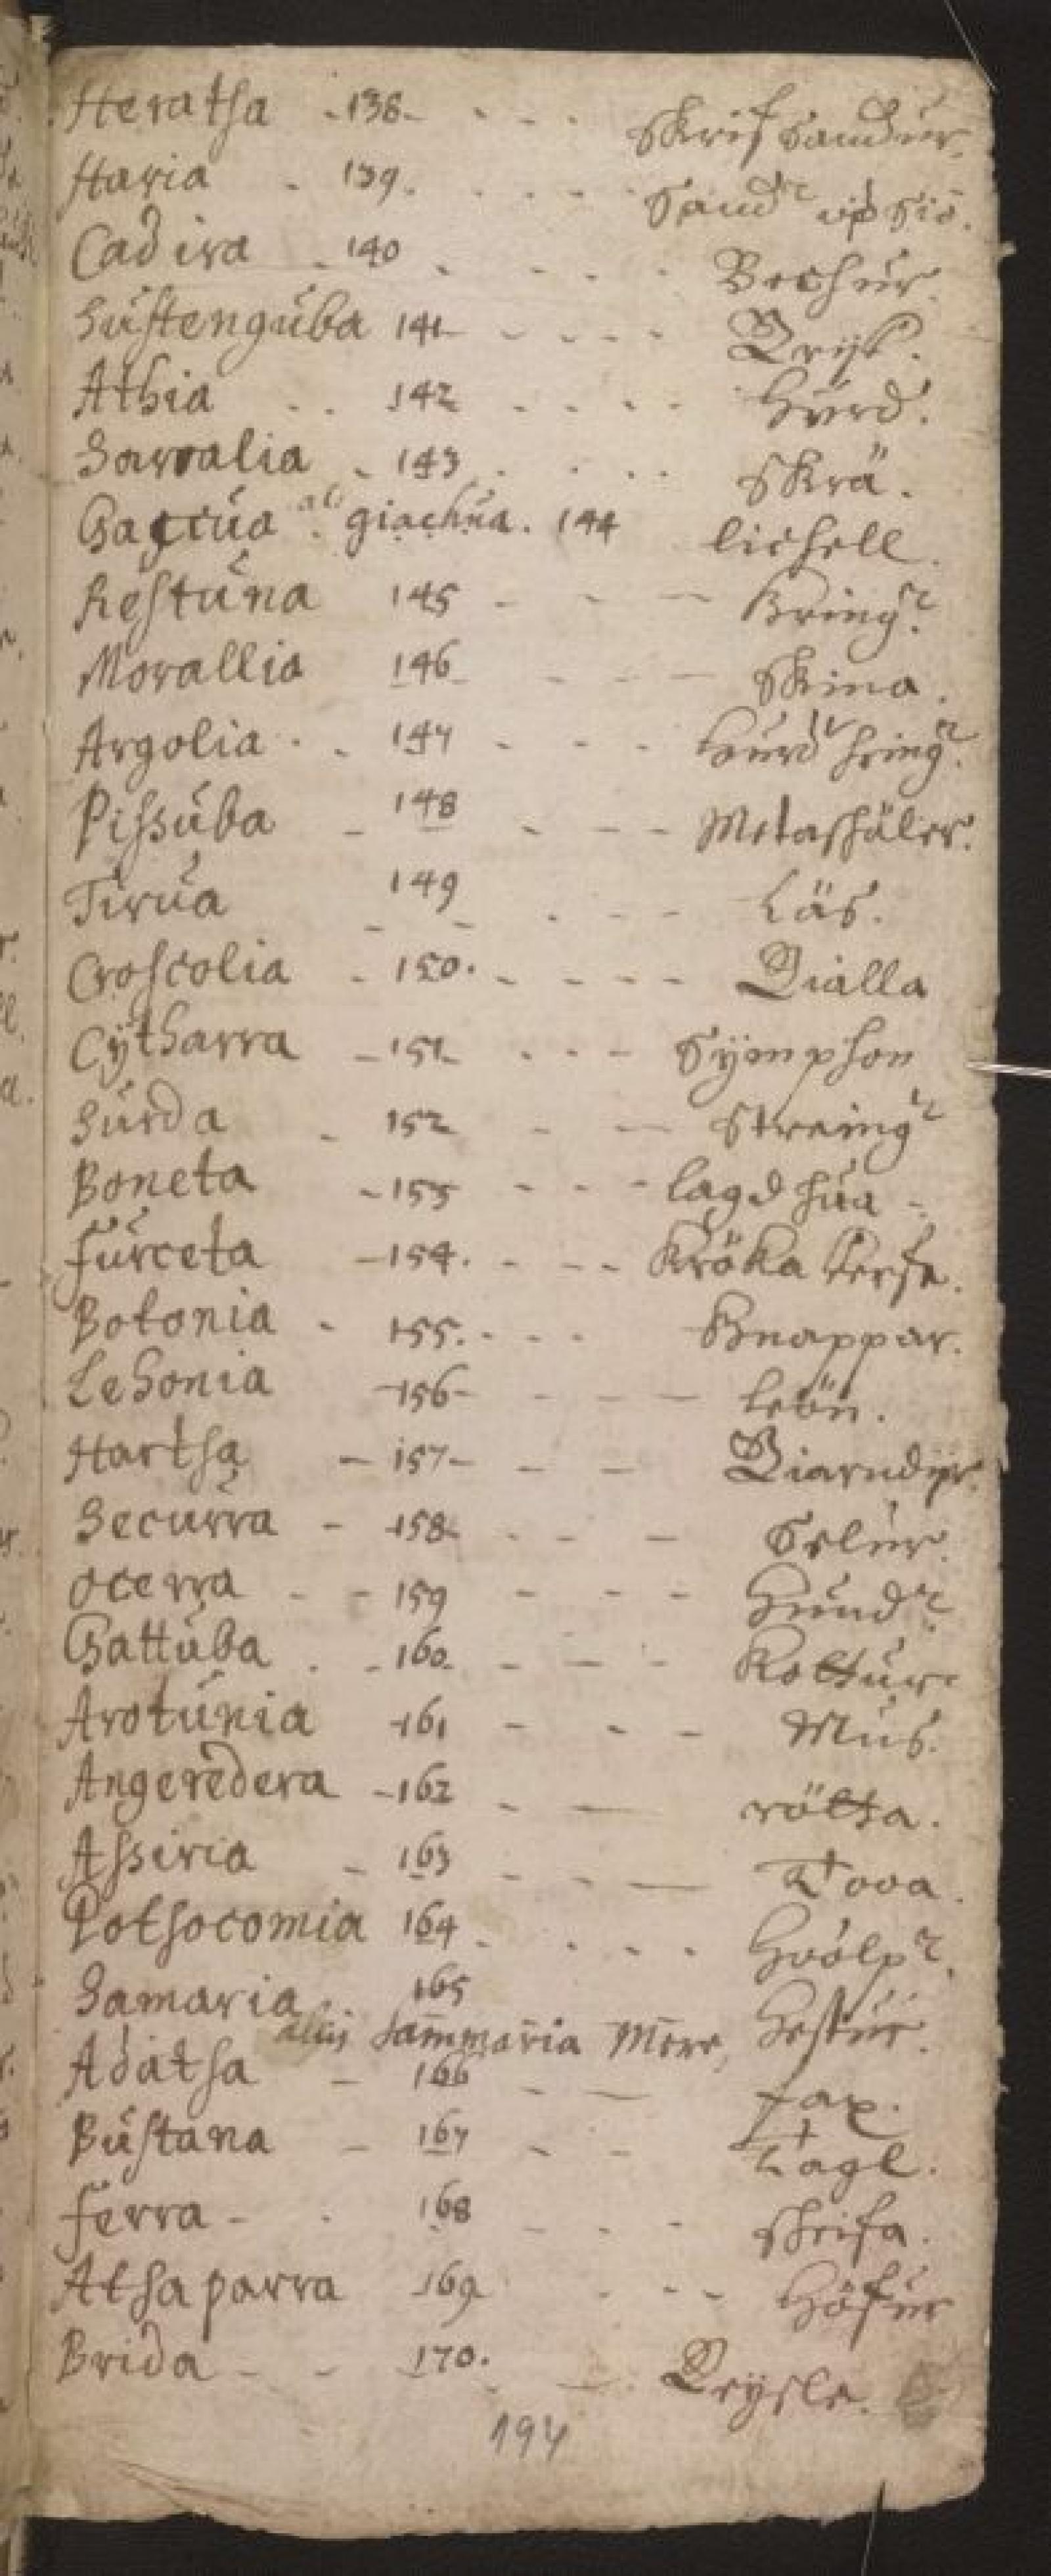 Heratsa - 138 - - - - Skrifsandur.
Haria - 139. - - - - Sandr við Sió.
Cadira - 140 - - - - Bechur.
Sustenguba 141 - - - - Bryk.
Athia - - 142 - - - - Hurd.
Sarralia - 143 - - - - Skrä.
Gaccua al. giachua. 144 lichell.
Restuna 145 - - - Kringr.
Morallia 146 - - - Skina.
Argolia - - 147 - - - hurdhringr.
Pissuba - 148 - - - Metaskäler.
Tirua - 149 - - - Läs.
Croscolia - 150. - - - - Bialla
Cytharra - 151 - - - Symphon
Surda - 152 - - Streingr
Boneta - 153 - - - lagd húa -
furceta - 154. - - - Króka
Botonia - 155. - - - Knappar.
Lehonia - 156 - - - león.
Hartsa - 157 - - - Biarndyr.
Securra - 158 - - - Selur.
Ocerra - - 159 - - - Hundr.
Gattuba - - 160 - - - Kottur.
Arotunia - 161 - - - Mús.
Angeredera - 162 - - rótta.
Assiria - 163 - - - Tooa.
Potsocomia 164 - - - - Hvólpr.
Samaria - 165 Hestur.
alii Sammaria Mere,
Adatsa - 166 - - fax.
Bustana - 167 - - Tagl.
ferra - - 168 - - - skeifa.
Atsaparra 169 - - - Höfur
Brida - - 170. - - Beysle.
194